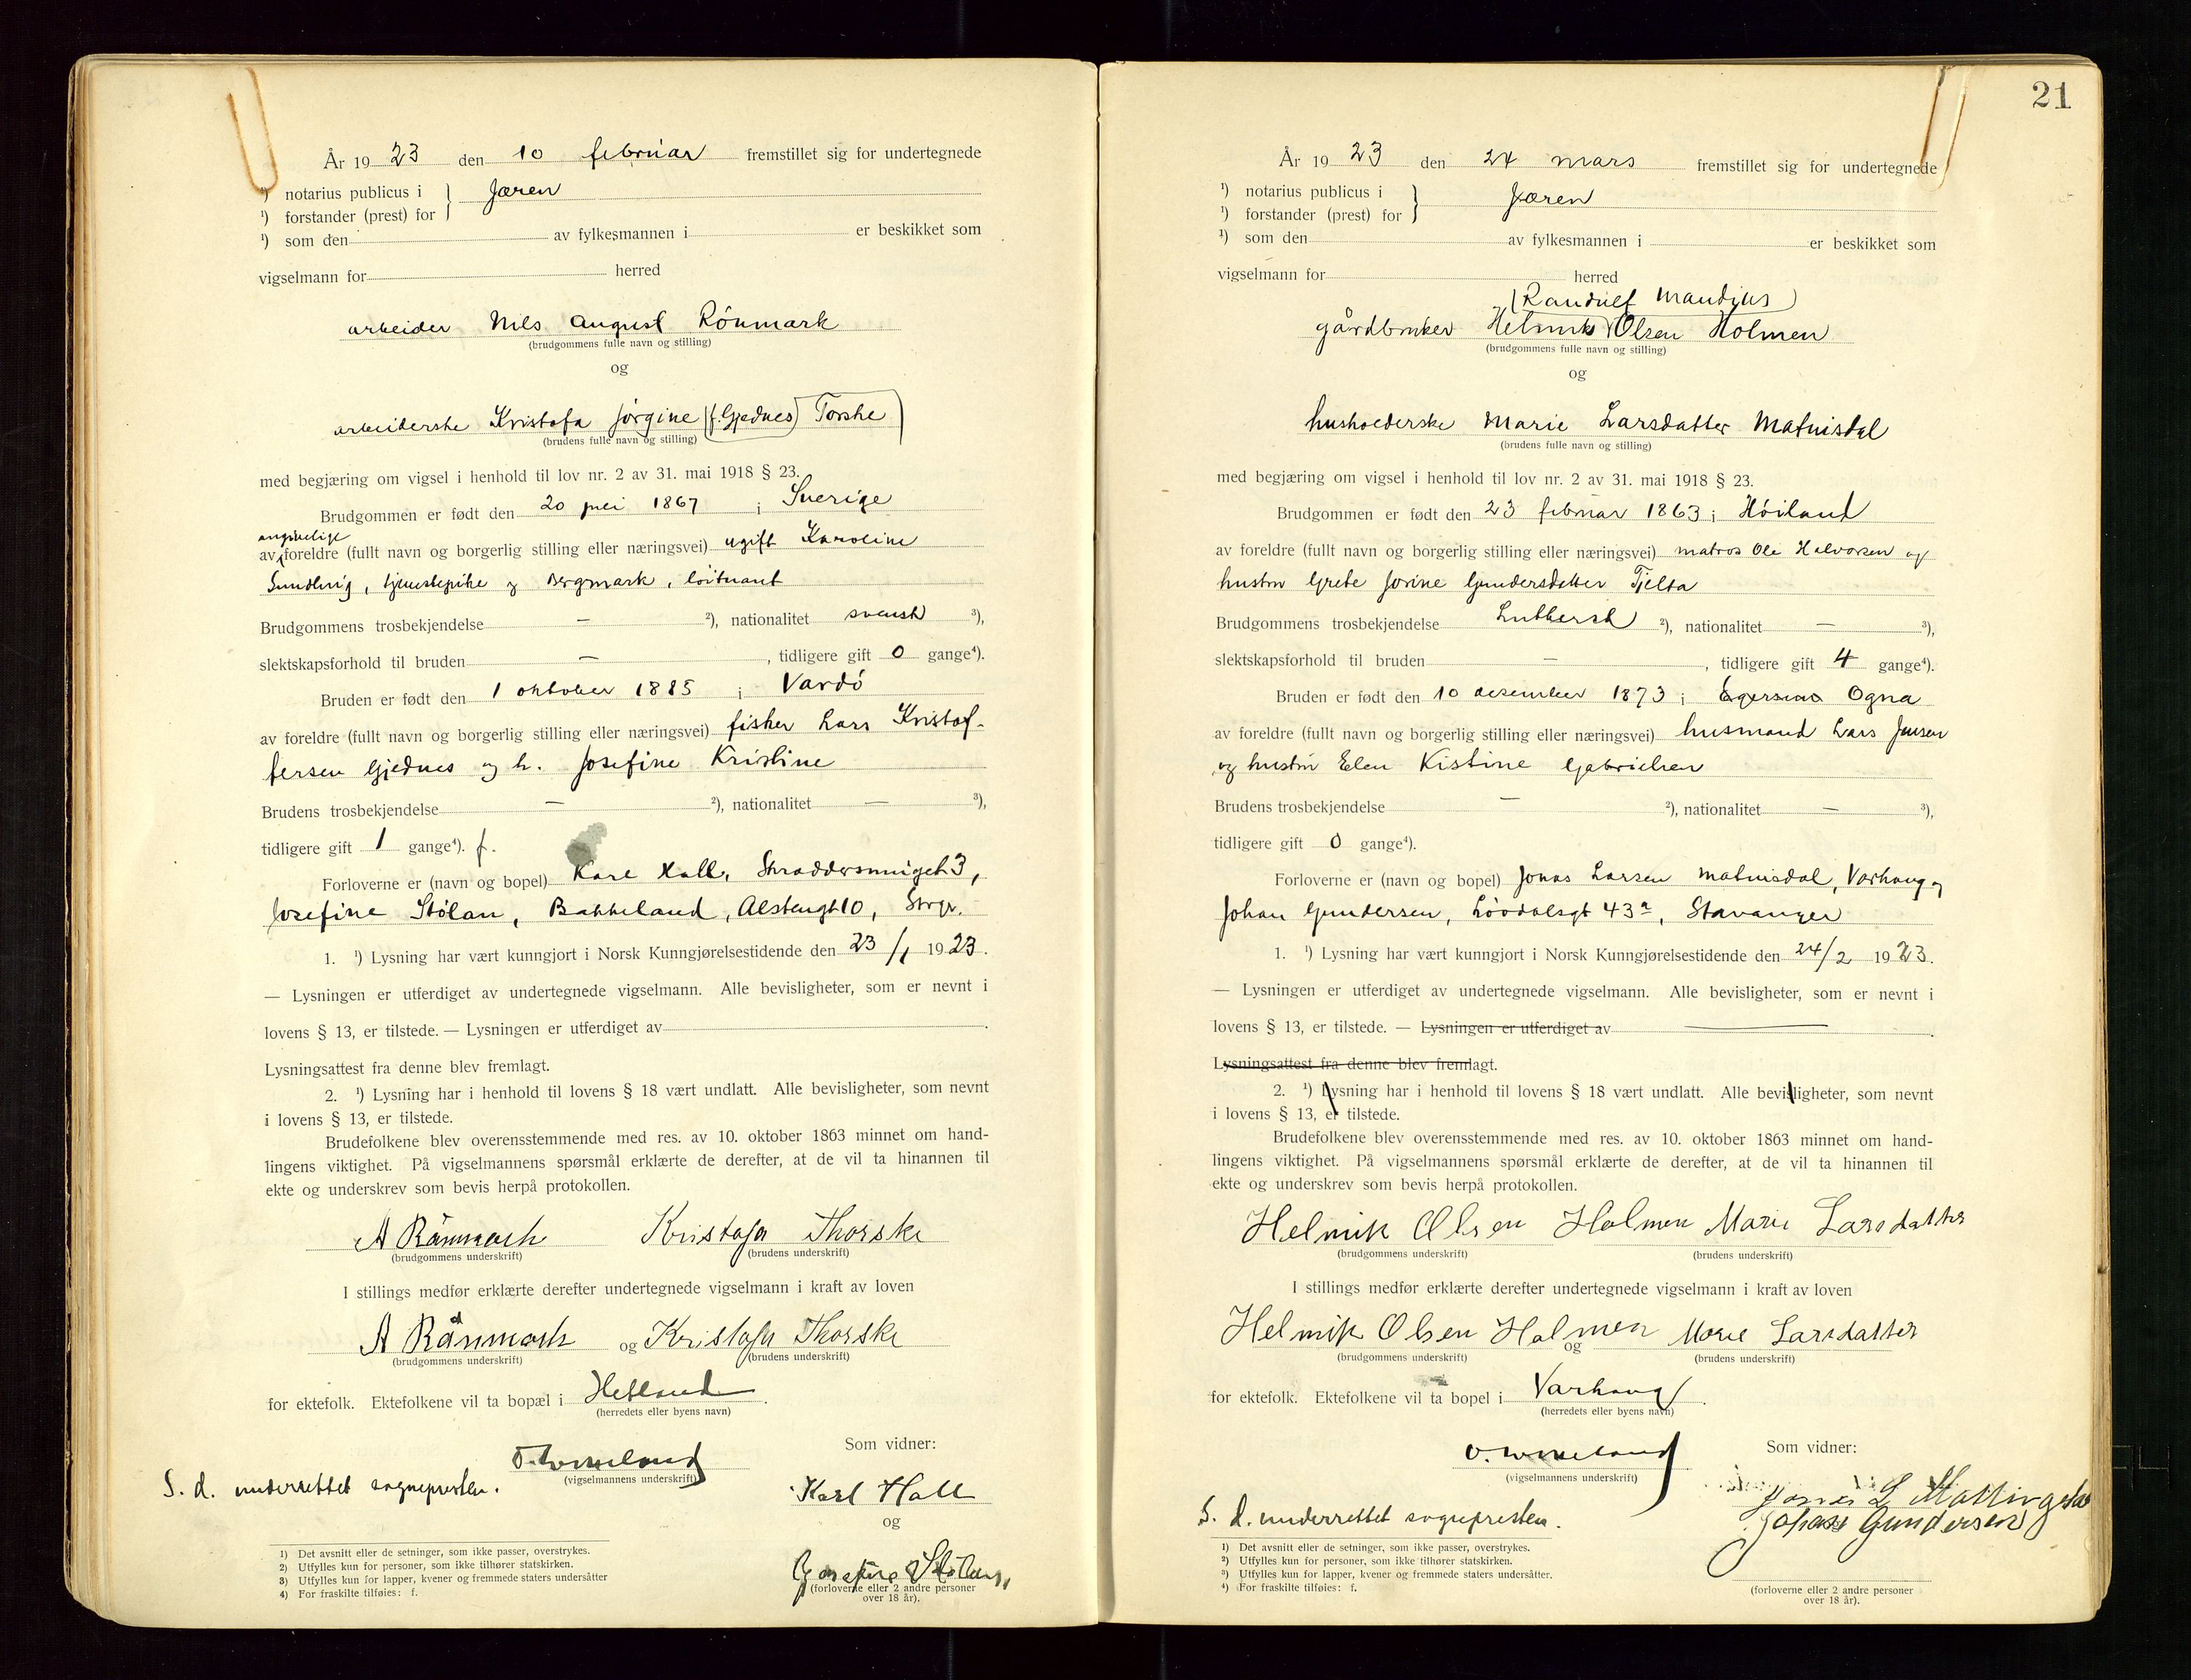 År 1923 den 10 februar fremstillet sig for undertegnede
¹) notarius publicus i } Jæren
¹) forstander (prest) for
¹) som den av fylkesmannen i er beskikket som
vigselmann for herred
arbeider Nils August Rönmark
(brudgommens fulle navn og stilling)
og
arbeiderske Kristofa Jörgine (f. Gjednes) Torske
(brudens fulle navn og stilling)
med begjæring om vigsel i henhold til lov nr. 2 av 31. mai 1918 § 23.
Brudgommen er født den 20 1867 i Sverige
angivelige
av foreldre (fullt navn og borgerlig stilling eller næringsvei) ugift Karoline
Sundling, tjenestepike og Bergmark, löitnant
Brudgommens trosbekjendelse — ²), nationalitet svensk ³),
slektskapsforhold til bruden — , tidligere gift 0 gange⁴).
Bruden er født den 1 oktober 1885 i Vardö
av foreldre (fullt navn og borgerlig stilling eller næringsvei) fisker Lars Kristof-
fersen Gjednes og h. Josefine Kristine
Brudens trosbekjendelse — ²), nationalitet — ³),
tidligere gift 1 gange⁴). f.
Forloverne er (navn og bopel) Karl Hall, 3,
Josefine Stölan, Bakkeland, 10, Stvgr.
1. ¹) Lysning har vært kunngjort i Norsk Kunngjørelsestidende den 23/1 1923.
— Lysningen er utferdiget av undertegnede vigselmann. Alle bevisligheter, som er nevnt i
lovens § 13, er tilstede. — Lysningen er utferdiget av .
Lysningsattest fra denne blev fremlagt.
2. ¹) Lysning har i henhold til lovens § 18 vært undlatt. Alle bevisligheter, som nevnt
i lovens § 13, er tilstede.
Brudefolkene blev overensstemmende med res. av 10. oktober 1863 minnet om hand-
lingens viktighet. På vigselmannens spørsmål erklærte de derefter, at de vil ta hinannen til
ekte og underskrev som bevis herpå protokollen.
A Rånmark Kristofa Thorske
(brudgommens underskrift) (brudens underskrift)
I stillings medfør erklærte derefter undertegnede vigselmann i kraft av loven
A Rånmark og Kristofa Thorske
(brudgommens underskrift) (brudens underskrift)
for ektefolk. Ektefolkene vil ta bopæl i Hetland.
(herredets eller byens navn)
Som vidner:
(vigselmannens underskrift)
S. d. underrettet sognepresten.
Karl Hall
og
Josefine Stölan,
(forloverne eller 2 andre personer
over 18 år).
1) Det avsnitt eller de setninger, som ikke passer, overstrykes.
2) Utfylles kun for personer, som ikke tilhører statskirken.
3) Utfylles kun for lapper, kvener og fremmede staters undersåtter
4) For fraskilte tilføies: f.
21
År 1923 den 24 mars fremstillet sig for undertegnede
¹) notarius publicus i } Jæren
¹) forstander (prest) for
¹) som den av fylkesmannen i er beskikket som
vigselmann for herred
(Randulf Mandius)
gårdbruker Helmik Olsen Holmen
(brudgommens fulle navn og stilling)
og
husholderske Marie Larsdatter Matnisdal
(brudens fulle navn og stilling)
med begjæring om vigsel i henhold til lov nr. 2 av 31. mai 1918 § 23.
Brudgommen er født den 23 februar 1863 i Höiland
av foreldre (fullt navn og borgerlig stilling eller næringsvei) matros Ole Halvorsen og
hustru Grete Jorine Gundersdatter Tjelta
Brudgommens trosbekjendelse Luthersk ²), nationalitet — ³),
slektskapsforhold til bruden — , tidligere gift 4 gange⁴).
Bruden er født den 10 desember 1873 i Egersund Ogna
av foreldre (fullt navn og borgerlig stilling eller næringsvei) husmand Lars Jensen
og hustru Elen Kistine Gabrielsen
Brudens trosbekjendelse — ²), nationalitet — ³),
tidligere gift 0 gange⁴).
Forloverne er (navn og bopel) Jonas Larsen Matnisdal, Varhaug og
Johan Gundersen, Lövdalsgt 43ᵃ, Stavanger
1. ¹) Lysning har vært kunngjort i Norsk Kunngjørelsestidende den 24/2 1923.
— Lysningen er utferdiget av undertegnede vigselmann. Alle bevisligheter, som er nevnt i
lovens § 13, er tilstede. — Lysningen er utferdiget av — .
Lysningsattest fra denne blev fremlagt.
2. ¹) Lysning har i henhold til lovens § 18 vært undlatt. Alle bevisligheter, som nevnt
i lovens § 13, er tilstede.
Brudefolkene blev overensstemmende med res. av 10. oktober 1863 minnet om hand-
lingens viktighet. På vigselmannens spørsmål erklærte de derefter, at de vil ta hinannen til
ekte og underskrev som bevis herpå protokollen.
Helmik Olsen Holmen Marie Larsdatter
(brudgommens underskrift) (brudens underskrift)
I stillings medfør erklærte derefter undertegnede vigselmann i kraft av loven
Helmik Olsen Holmen og Marie Larsdatter
(brudgommens underskrift) (brudens underskrift)
for ektefolk. Ektefolkene vil ta bopel i Varhaug.
(herredets eller byens navn)
Som vidner:
(vigselmannens underskrift)
Jonas L Mattingsdal
Johan Gundersen
S. d. underrettet sognepresten.
1) Det avsnitt eller de setninger, som ikke passer, overstrykes.
²) Utfylles kun for personer, som ikke tilhører statskirken.
³) Utfylles kun for lapper, kvener og fremmede staters undersåtter.
⁴) For fraskilte tilføies: f.
(forloverne eller 2 andre personer
over 18 år).